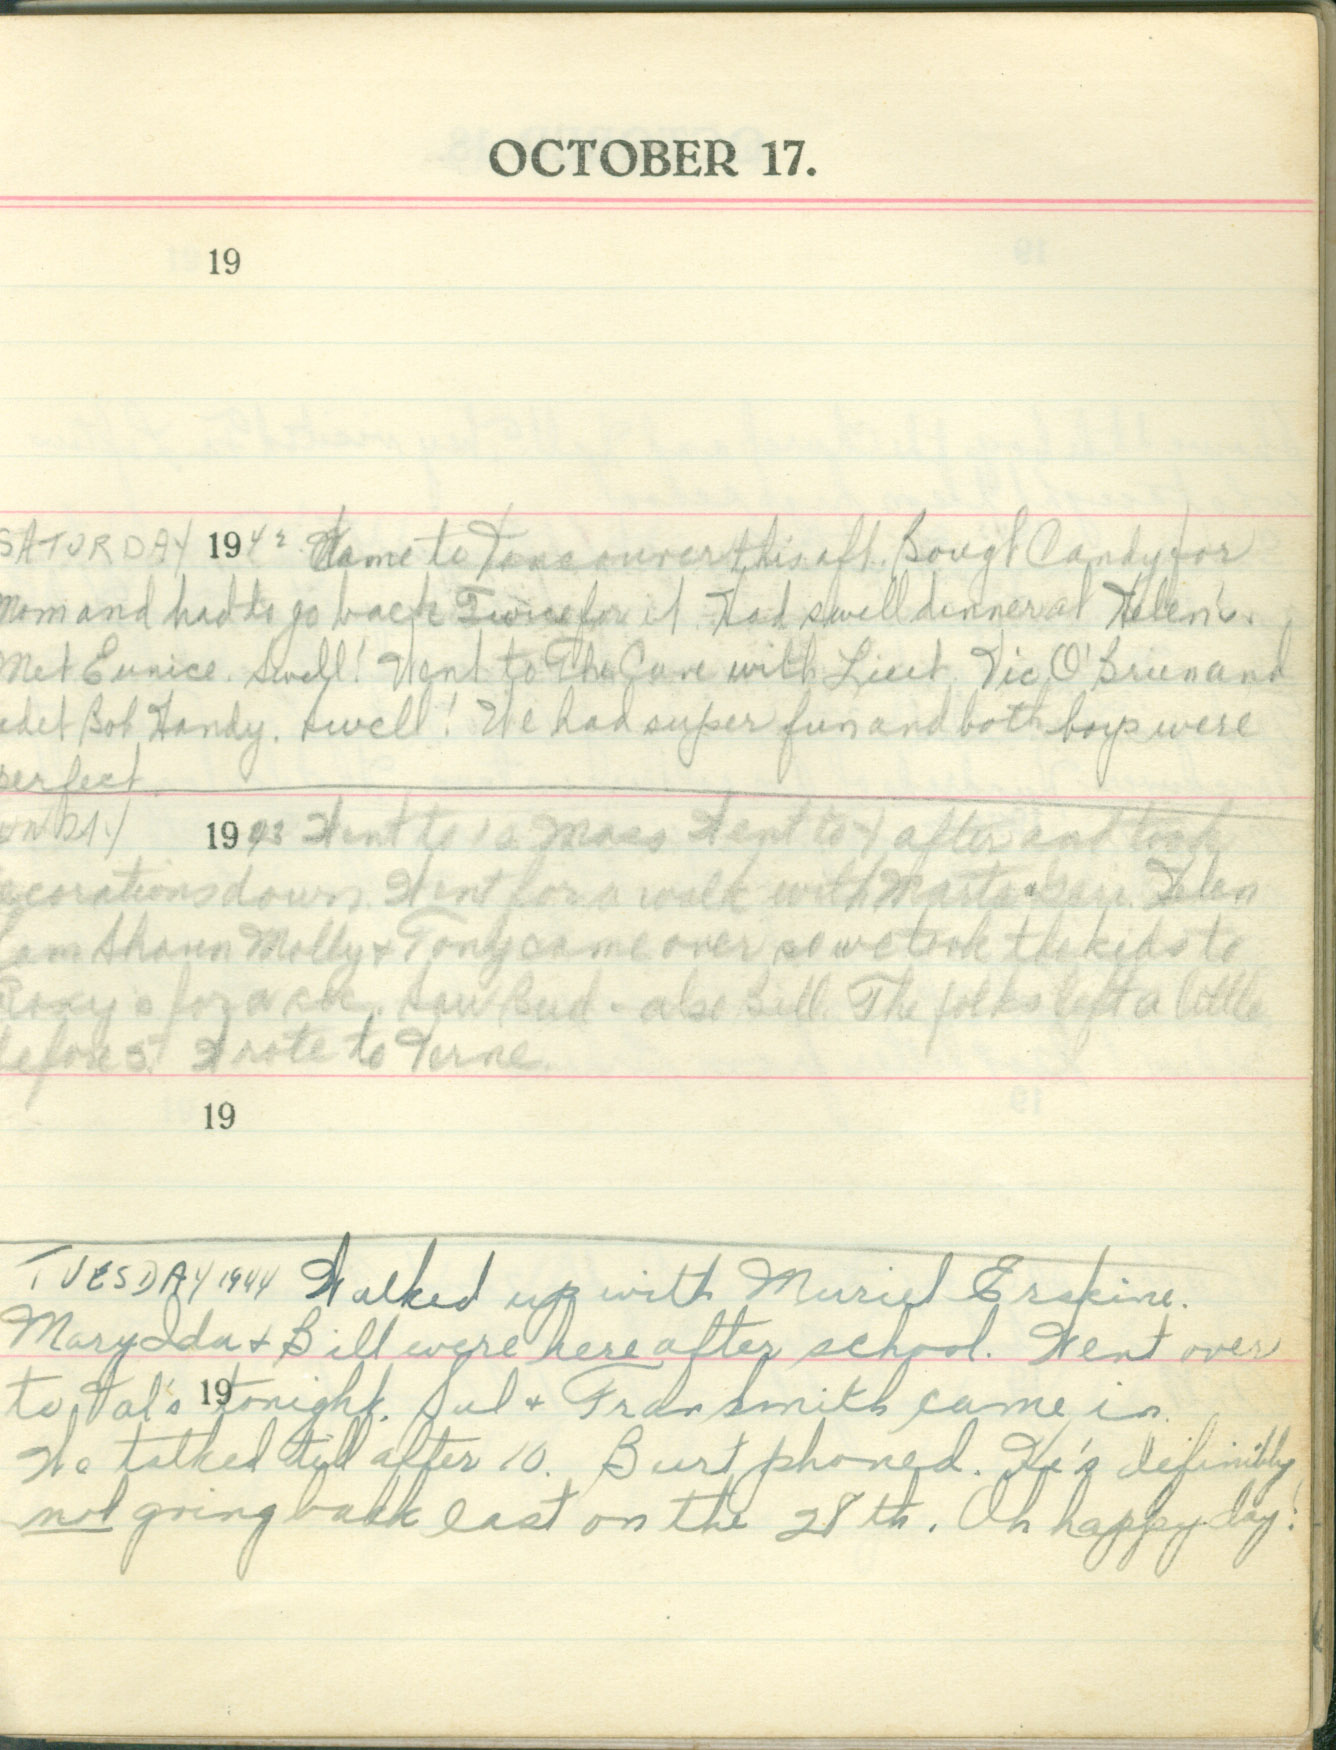 OCTOBER 17.
19
SATURDAY 1942 Came to Vancouver this aft. Bougt Candy for
Mom and had to go back Twice for it. Had swell dinner at Helen's.
Met Eunice. Swell! Went to The Cave with Lieut. Vic O'Brien and
adet Bob Handy. Swell! We had super fun and both boys were
perfect.
UNDAY 1943 Went to 12 Mass Went to Y after and took
ecorations down. Went for a walk with Marta Helen
Cam Shaun Molly & Tony came over so we took the kids to
Roxy's for a coc. Saw Bud - also Bill. The folks left a little
before 5. Wrote to Verne.
19
TUESDAY 1944 Walked up with Muriel Erskine.
Mary Ida & Bill were here after school. Went over
to Val's 19 tonight. & Fran Smith came in.
We talked till after 10. Burt phoned. He's definitly
not going back east on the 28th. Oh happy day!